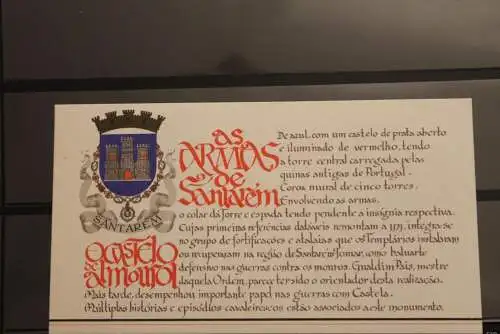 SANTARÉM
As
ARMAS
de
Santarém
De azul, com um castelo de prata aberto
e iluminado de vermelho, tendo
a torre central carregada pelas
quinas antigas de Portugal.
Coroa mural de cinco torres.
Envolvendo as armas,
o colar da Torre e espada tendo pendente a insígnia respectiva.
O CASTELO
de
almourol
Cujas primeiras referências datáveis remontam a 1171, integra-se
no grupo de fortificações e atalaias que os Templários instalaram
ou recuperaram na região de Santarém-Tomar, como baluarte
defensivo nas guerras contra os mouros. Gualdim Pais, mestre
daquela Ordem, parece ter sido o orientador desta realização.
Mais tarde, desempenhou importante papel nas guerras com Castela.
Múltiplas histórias e episódios cavaleirescos estão associados a este monumento.